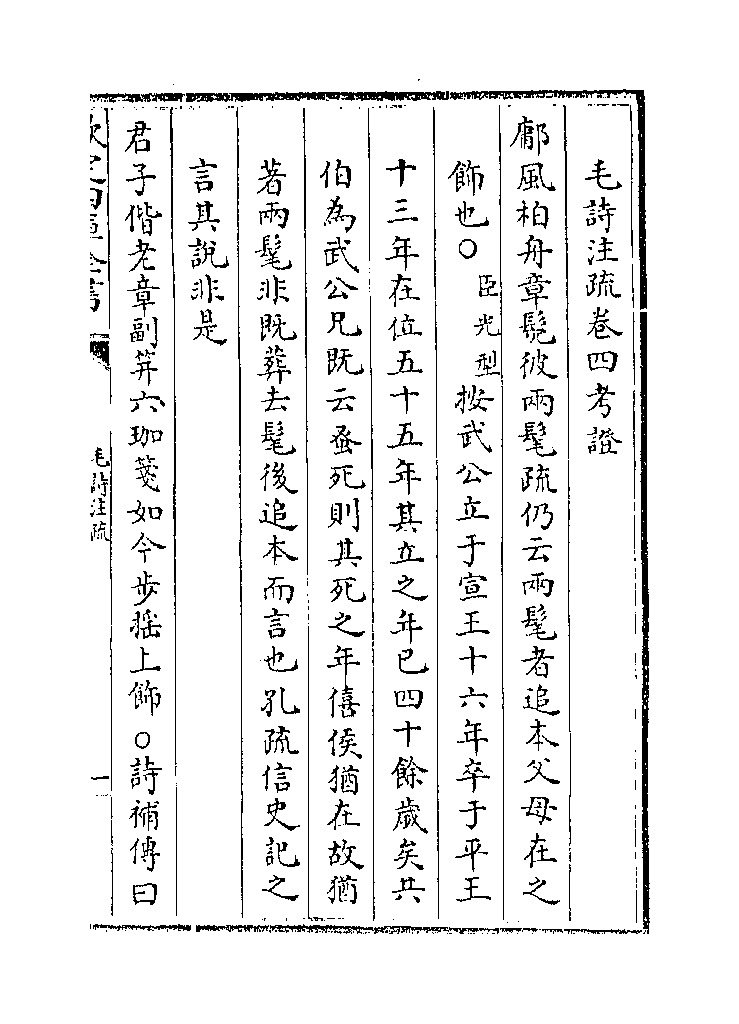 毛詩注疏卷四考證
鄘風柏舟章髧彼兩髦疏仍云兩髦者追本父母在之
飾也〇臣光型按武公立于宣王十六年卒于平王
十三年在位五十五年其立之年已四十餘歲矣共
伯為武公兄既云蚤死則其死之年僖侯猶在故猶
著兩髦非既葬去髦後追本而言也孔疏信史記之
言其說非是
君子偕老章副笄六珈箋如今步摇上飾〇詩補傳曰
毛詩注疏
一